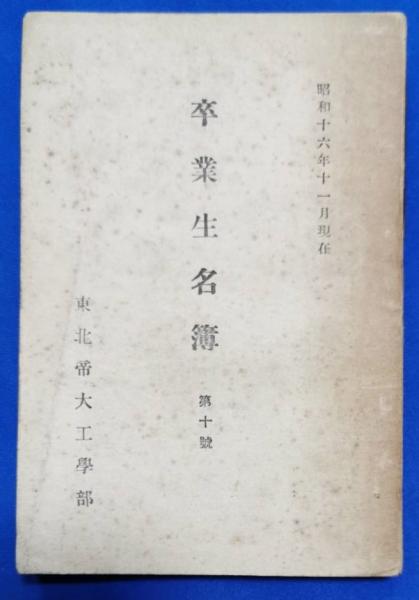 昭和十六年十一月現在
卒業生名簿 第十號
東北帝大工學部